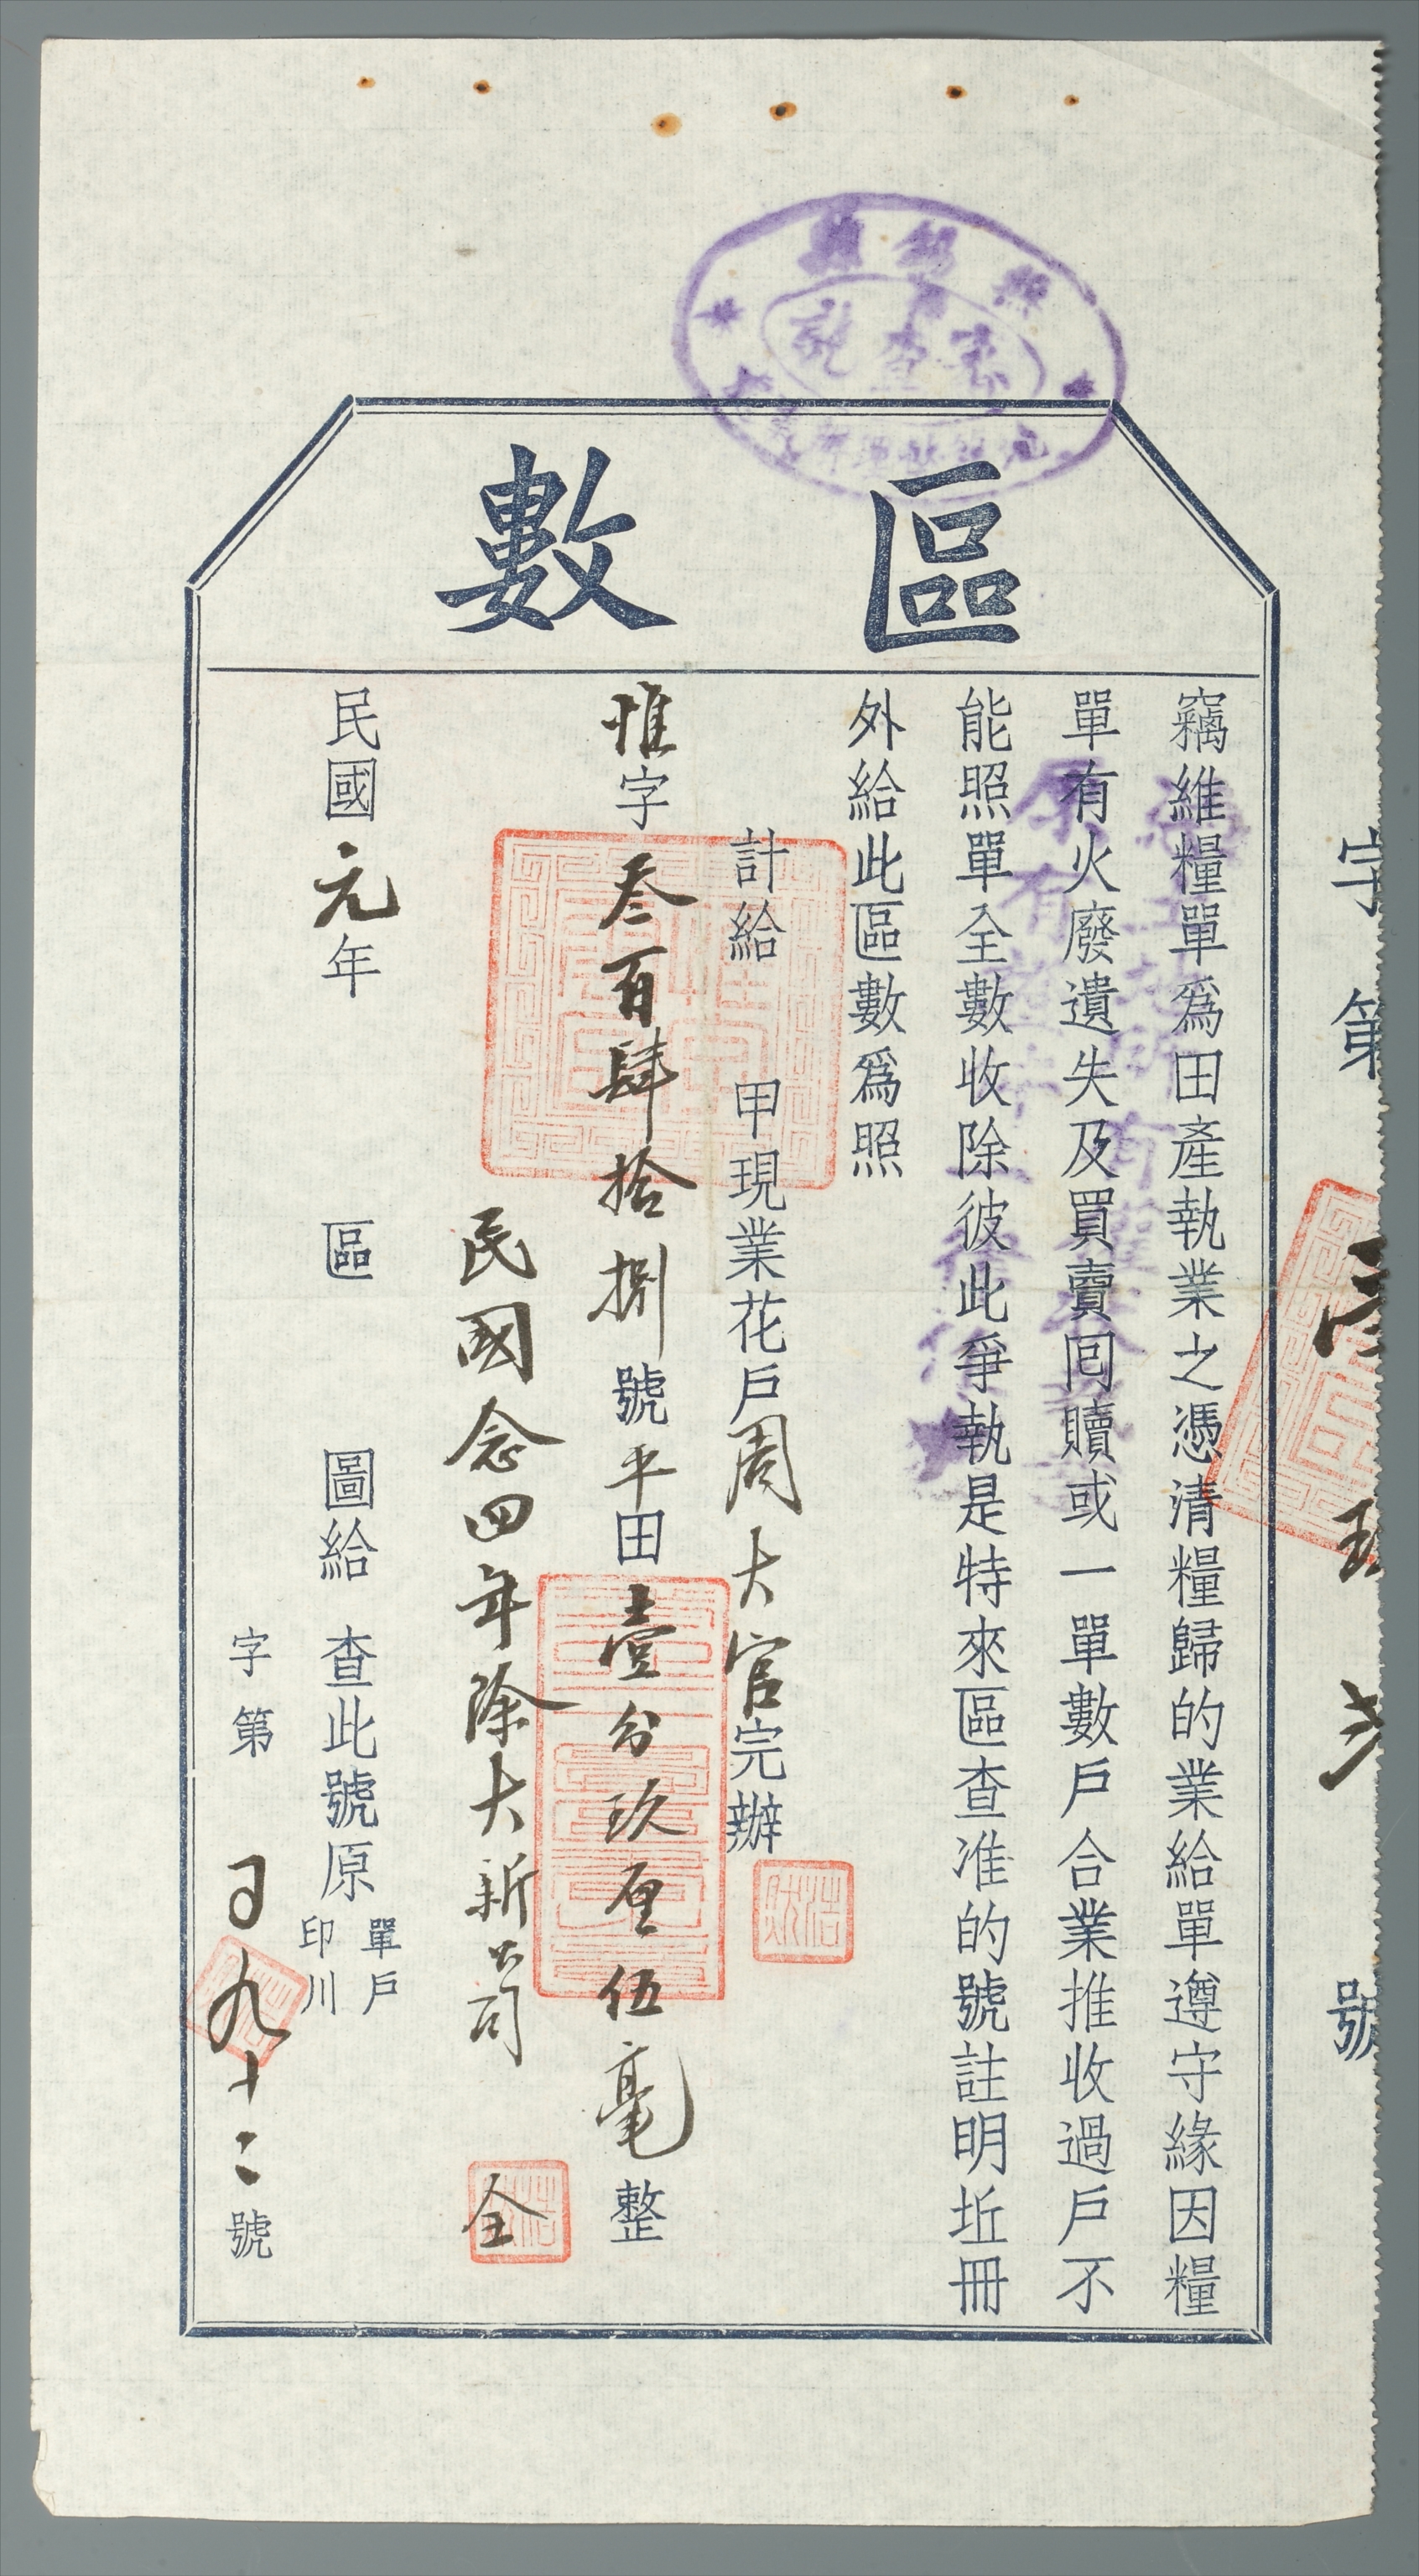 區數
竊維糧單爲田產執業之憑清糧歸的業給單遵守緣因糧
單有火廢遺失及買賣囘贖或一單數戶合業推收過戶不
能照單全數收除彼此爭執是特來區查准的號註明坵冊
外給此區數爲照
計給 甲現業花戶周大官完辦
惟字叁百肆拾捌號平田壹分玖厘伍毫整
民國念四年除大新 全
民國元年 區 圖給 查此號原
單戶
印川
字第 九十二號
字第 號